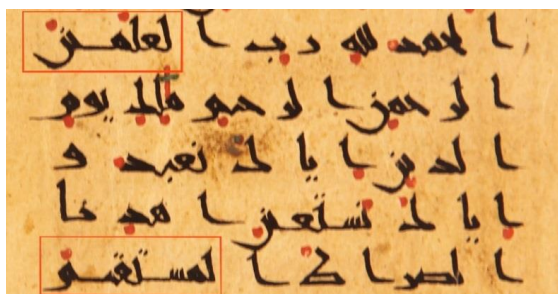 الحمد لله رب العلمين
الرحمن الرحيم ملك يوم
الدين اياك نعبد و
اياك نستعين اهدنا
الصراط المستقيم